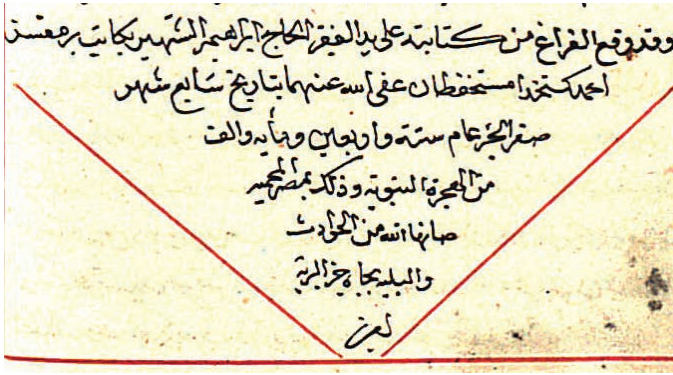 وقد وقع الفراغ من كتابته على يد الفقير الحاج ابراهيم الشهير بكاتب
احمد كتخدا مستحفظان عفى الله عنهما بتاريخ سابع شهر
صفر الخير عام ستة واربعين ومايه والف
من الهجرة النبويه وذلك بمصر المحميه
صانها الله من الحوادث
والبليه بجاه خير البرية